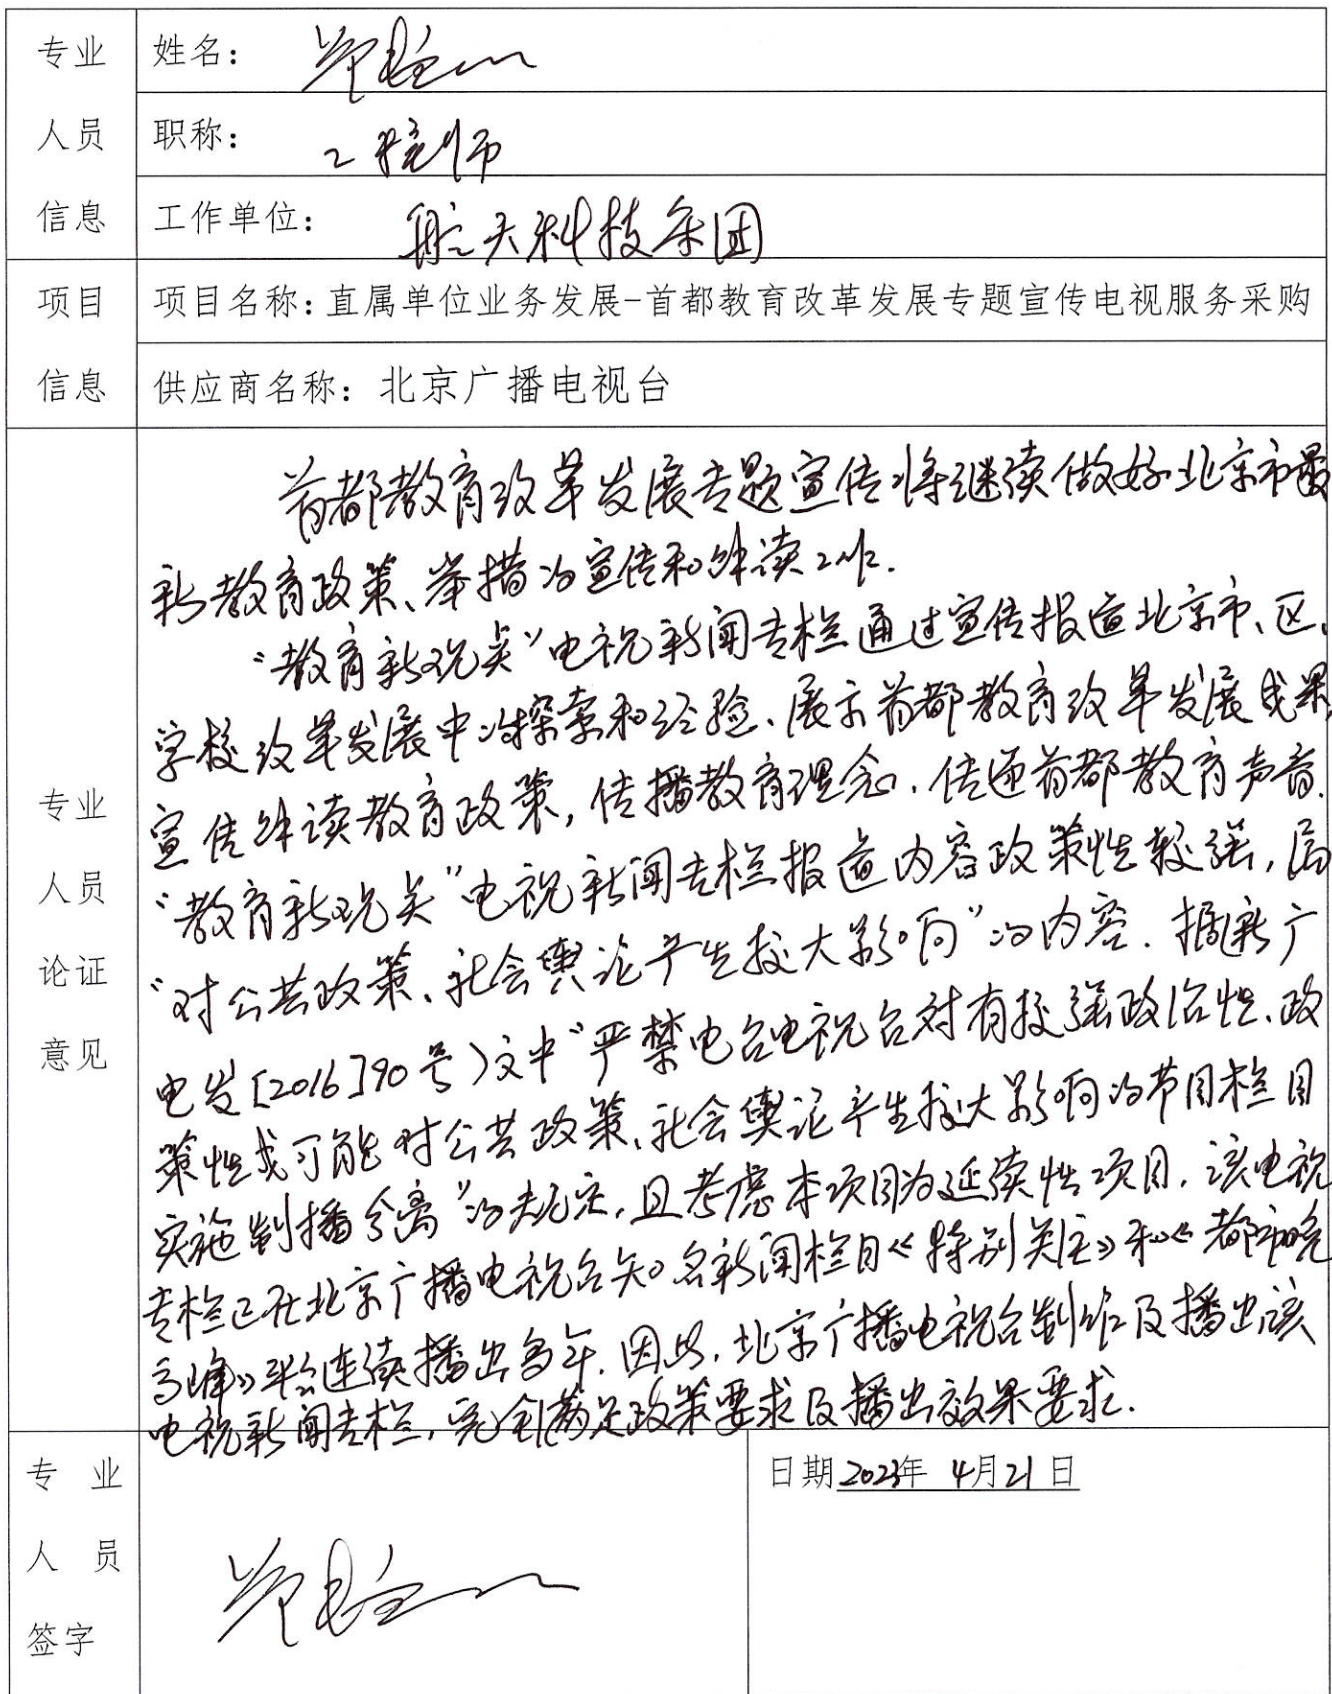 专业
人员
信息
姓名：
职称： 工程师
工作单位： 航天科技集团
项目
信息
项目名称：直属单位业务发展-首都教育改革发展专题宣传电视服务采购
供应商名称：北京广播电视台
专业
人员
论证
意见
首都教育改革发展专题宣传将继续做好北京市最
新教育政策、举措的宣传和解读工作.
“教育新观点”电视新闻专栏通过宣传报道北京市、区、
学校改革发展中的探索和经验、展示首都教育改革发展成果,
宣传解读教育政策, 传播教育理念, 传递首都教育声音.
“教育新观点”电视新闻专栏报道内容政策性较强, 属
“对公共政策、社会舆论产生较大影响”的内容. 据新广
电发[2016]90号)文中“严禁电台电视台对有较强政治性、政
策性或可能对公共政策、社会舆论产生较大影响的节目栏目
实施制播分离”的规定, 且考虑本项目为延续性项目, 该电视
专栏已在北京广播电视台知名新闻栏目《特别关注》和《都市晚
高峰》平台连续播出多年. 因此, 北京广播电视台制作及播出该
电视新闻专栏, 完全满足政策要求及播出效果要求.
专 业
人 员
签字
日期2023年 4月21日